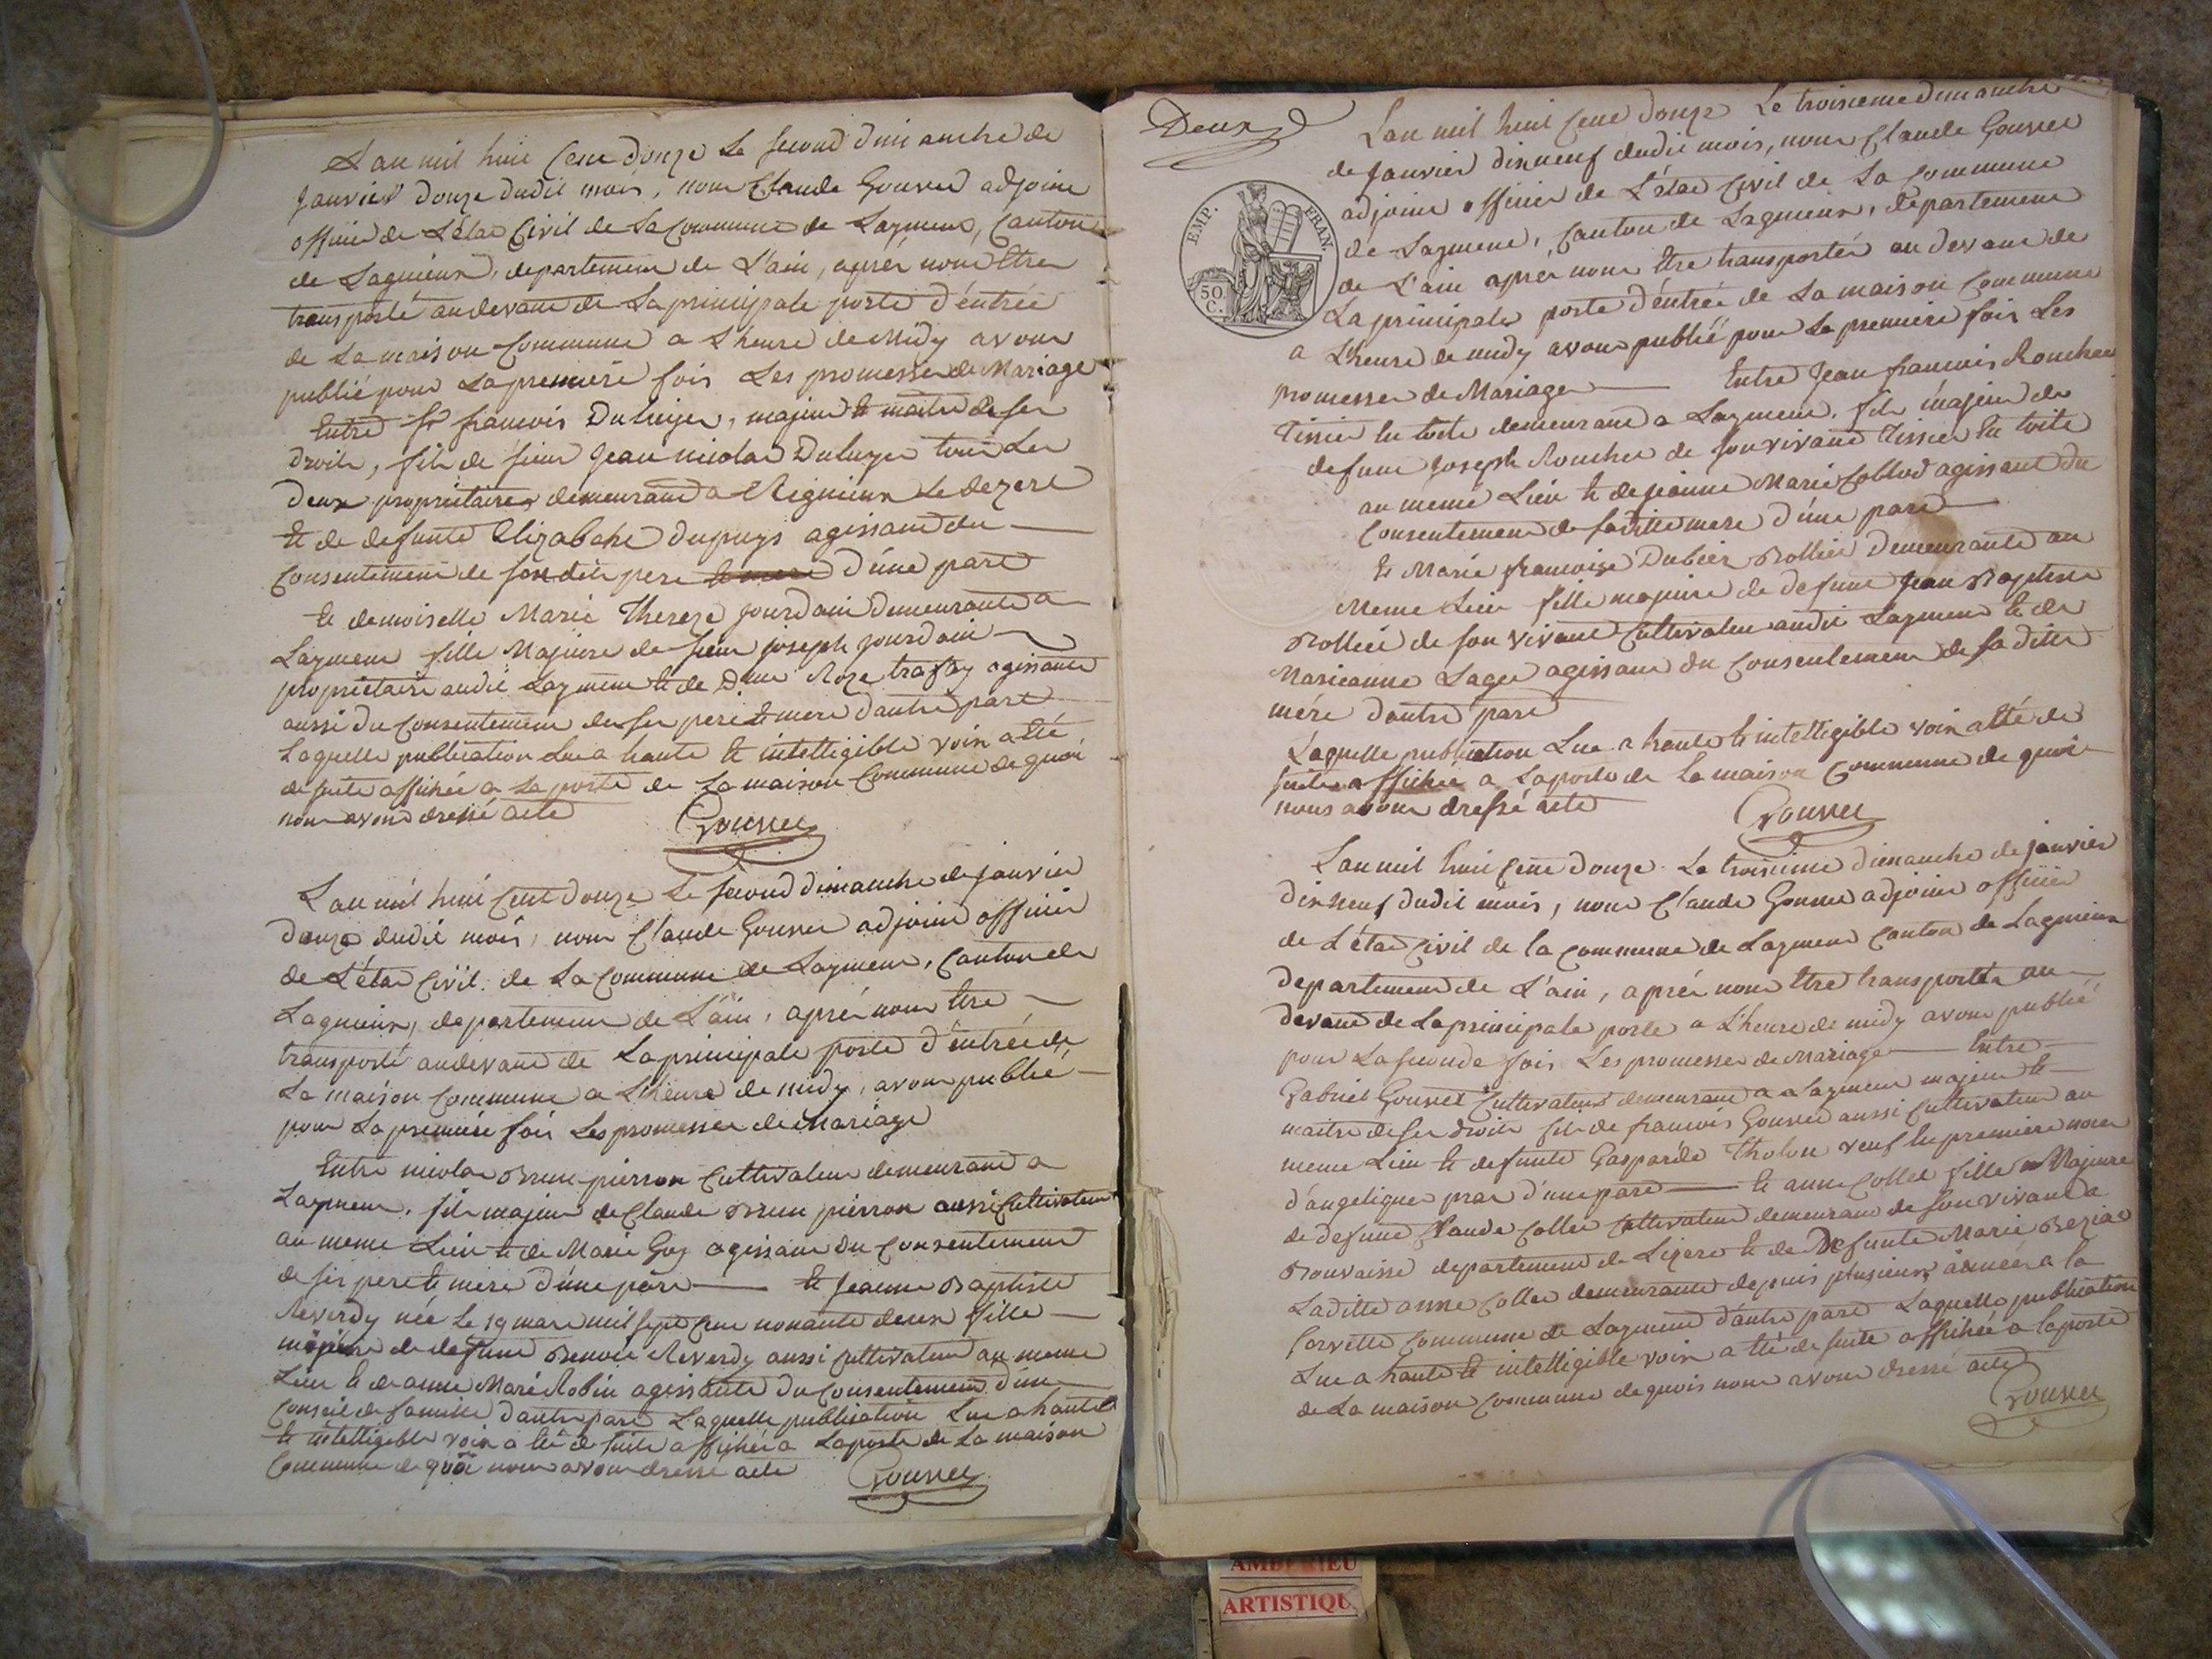 L'an mil huit Cent douze Le second dimanche de
Janvier douze dudit mois, nous Claude Gouvet adjoint
officier de L'état Civil de La Commune de Lagnieux, Canton
de Lagnieux, departement de L'ain, aprés nous être
transporté au devant de La principale porte d'éntrée
de La maison Commune a L'heure de Midy avons
publié pour La premiere fois Les promesses de Mariage
Entre Sr francois Duluyer, majeur et maitre de ses
droits, fils de sieur Jean nicolas Duluyer tous Les
deux propriétaires demeurant a Rignieux Le dezert
et de defunte Elizabeht Dupuys agissant du
Consentement de son dit pere et mere d'une part
et demoiselle Marie Thereze Jourdain demeurante a
Lagnieux fille Majeure de sieur joseph Jourdain
propriétaire audit Lagnieux et de Dme Roze agissante
aussi du Consentement de ses pere et mere d'autre part
Laquelle publication Lue a haute et intelligible voix a été
de suite affichée a La porte de La maison Commune de quoi
nous avons dressé acte
Gouvet
L'an mil huit Cent douze Le second dimanche de janvier
douze dudit mois, nous Claude Gouvet adjoint officier
de L'état Civil de La Commune de Lagnieux, Canton de
Lagnieux, departement de L'ain, aprés nous être
transporté au devant de La principale porte d'éntrée de
La maison Commune a L'heure de midy, avons publié
pour La premiére fois Les promesses de Mariage
Entre nicolas Brun pierron Cultivateur demeurant a
Lagnieux, fils majeur de Claude Brun pierron aussi Cultivateur
au meme Lieu et de Marie Guy agissant du Consentement
de ses pere et mere d'une part et Jeanne Baptiste
Reverdy née Le 19 mars mil sept Cent nonante deux fille
mineure de defunt Benoit Reverdy aussi Cultivateur au meme
Lieu et de anne Marie Robin agissante du Consentement d'un
Conseil de famille d'autre part Laquelle publication Lue a haute
et intelligible voix a été de suite affichée a La porte de La maison
Commune de quoi nous avons dressé acte
Gouvet
Deux
EMP. FRAN.
50 C.
L'an mil huit Cent douze Le troisieme dimanche
de Janvier dix neuf dudit mois, nous Claude Gouvet
adjoint officier de L'état Civil de La Commune
de Lagnieux, Canton de Lagnieux, departement
de L'ain aprés nous être transporté au devant de
La principale porte d'éntrée de La maison Commune
a L'heure de midy avons publié pour La premiere fois Les
promesses de Mariage Entre Jean francois Rouchet
Tissier en toile demeurant a Lagnieux, fils majeur de
defunt Joseph Rouchet de son vivant Tissier en toile
au meme Lieu et de Jeanne Marie Collod agissant du
Consentement de sa ditte mere d'une part
et Marie francoise Rollier Demeurante au
Meme Lieu fille majeure de defunt Jean Baptiste
Rollier de son vivant Cultivateur audit Lagnieux et de
Marieanne Lager agissant du Consentement de sa ditte
mére d'autre part
Laquelle publication Lue a haute et intelligible voix a été de
suite affichée a La porte de La maison Commune de quoi
nous avons dressé acte
Gouvet
L'an mil huit Cent douze Le troisieme dimanche de janvier
dix neuf dudit mois, nous Claude Gouvet adjoint officier
de L'état Civil de la Commune de Lagnieux Canton de Lagnieux
departement de L'ain, aprés nous être transporté au
devant de La principale porte a L'heure de midy avons publié
pour La seconde fois Les promesses de Mariage Entre
Gabriel Gouvet Cultivateur demeurant a Lagnieux majeur et
maitre de ses droits fils de francois Gouvet aussi Cultivateur au
meme Lieu et defunte Gasparde Tholon veuf en premiere noce
d'angelique pras d'une part et anne Collet fille Majeure
de defunt Claude Collet Cultivateur demeurant de son vivant a
Bouvaisse departement de Lizere et de Defunte Marie
Laditte anne Collet demeurante depuis plusieurs années a la
Corvette Commune de Lagnieux d'autre part Laquelle publication
Lue a haute et intelligible voix a été de suite affichée a La porte
de La maison Commune de quois nous avons dressé acte
Gouvet
AMBERIEU
ARTISTIQU